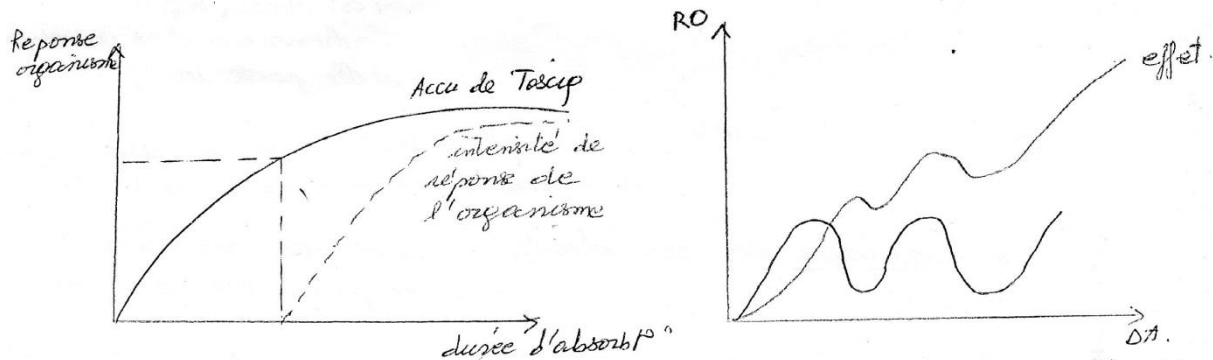 Reponse
organisme
Accu de Toxiq
intensité de
réponse de
l'organisme
durée d'absorbt°
RO
effet.
DA.